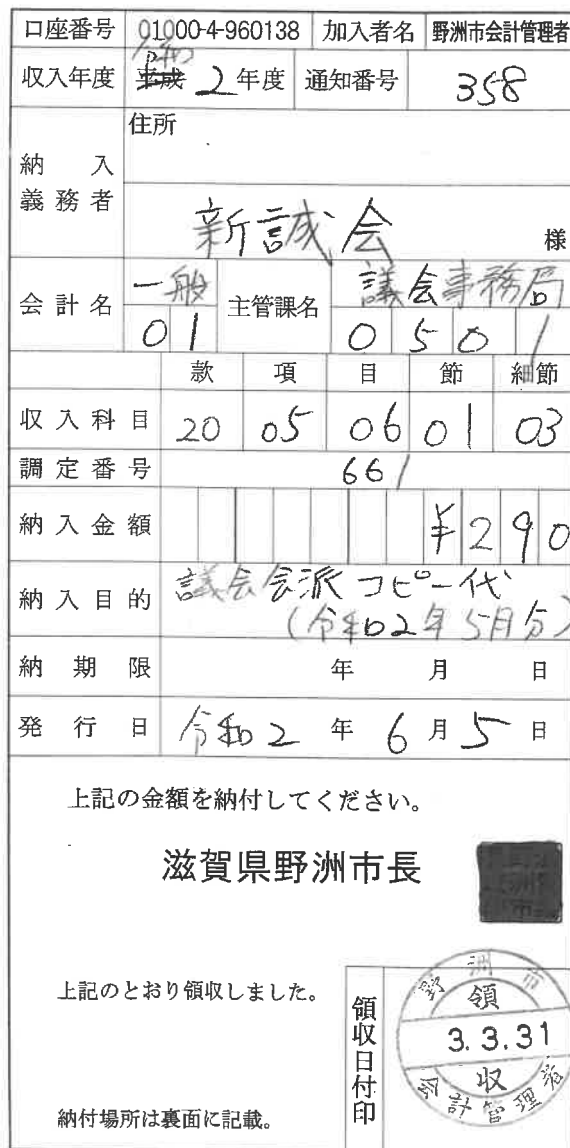 口座番号 01000-4-960138 加入者名 野洲市会計管理者
令和
収入年度 平成 2 年度 通知番号 358
住所
納入義務者
新誠会 様
会計名 一般 主管課名 議会事務局
01 0501
款 項 目 節 細節
収入科目 20 05 06 01 03
調定番号 661
納入金額 ¥290
納入目的 議会会派コピー代
(令和2年5月分)
納期限 年 月 日
発行日 令和2年6月5日
上記の金額を納付してください。
滋賀県野洲市長
上記のとおり領収しました。
領収日付印
野洲市
領
3.3.31
収
会計管理者
納付場所は裏面に記載。